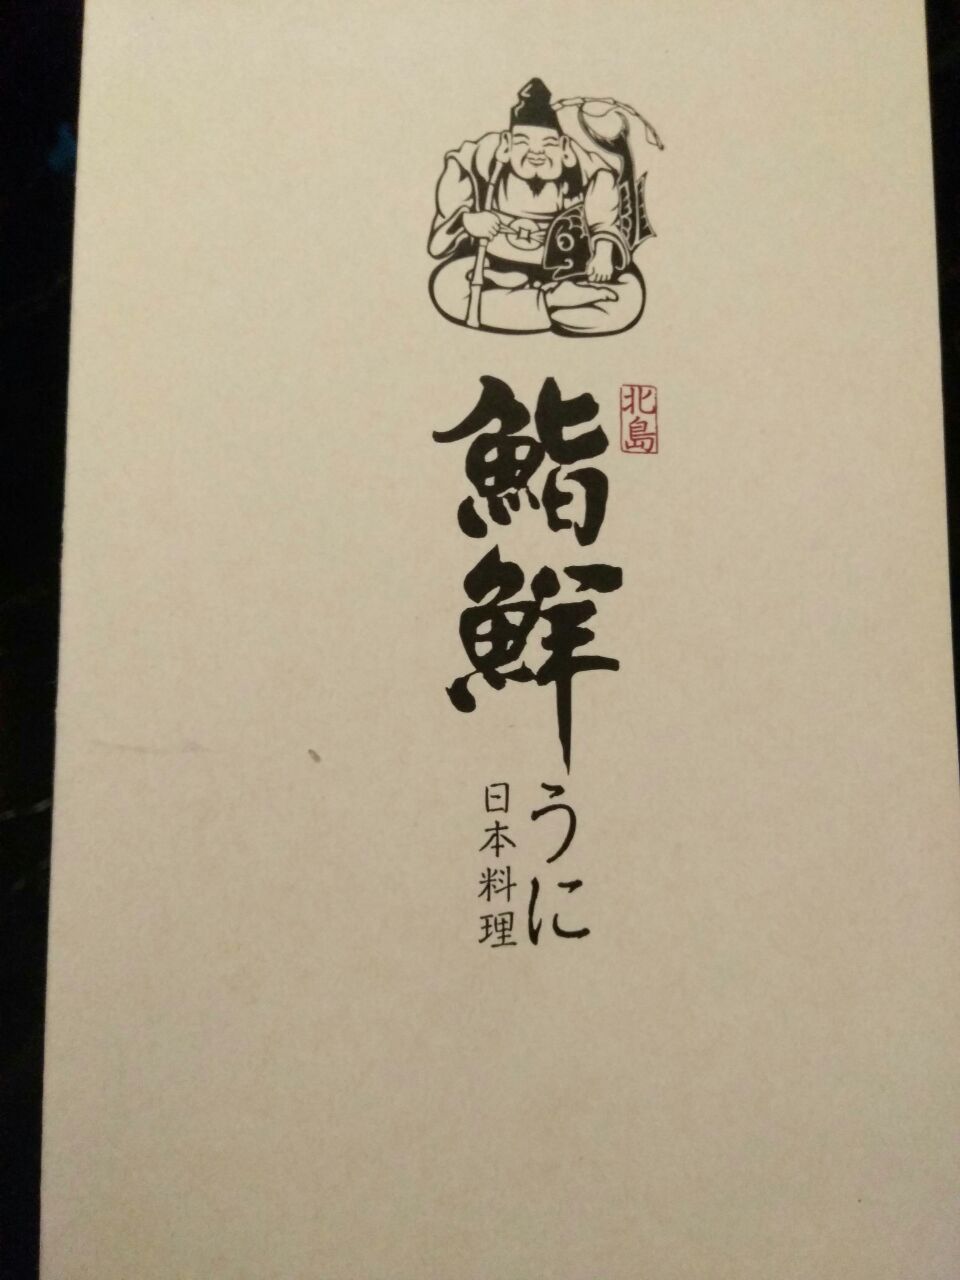 北島
鮨鮮
うに
日本料理